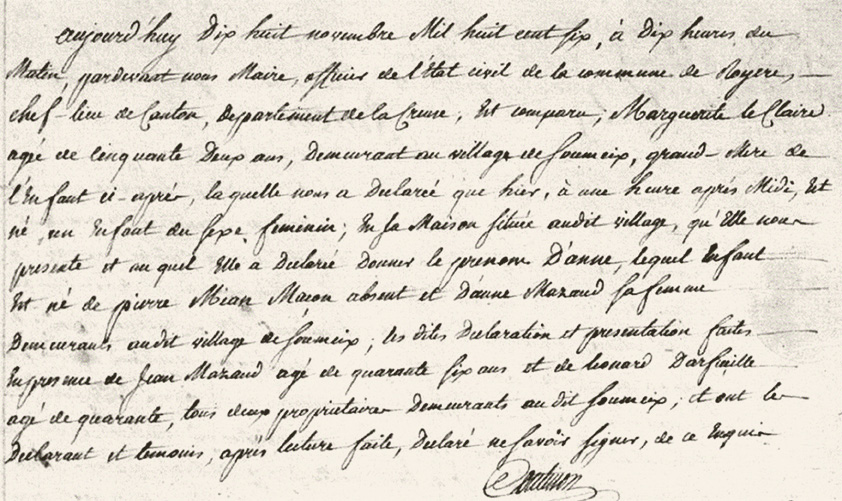 aujourd'huy Dix huit novembre Mil huit cent six, à Dix heures du
Matin, pardevant nous Maire, officier de l'État civil de la commune de Royere,
chef-lieu de Canton, département de la Creuse, Est comparu, Marguerite le Claire
agé de Cinquante Deux ans, Demeurant au village de Soumeix, grand-Mere de
l'Enfant ci-après, laquelle nous a Declareé que hier, à une heure après Midi, Est
né, un Enfant du sexe feminin; En sa Maison située audit village, qu'Elle nous
presente et auquel Elle a Declareé Donner le prenom D'anne, lequel Enfant
Est né de pierre Mean Macon absent et D'anne Mazaud sa femme
Demeurants audit village de Soumeix; les dites Declaration et presentation faites
En presence de Jean Mazaud agé de quarante six ans et de leonard Darfeuille
agé de quarante, tous deux proprietaires Demeurants audit Soumeix; et ont le
Declarant et temoins, après lecture faite, Declaré ne Savoir Signer, de ce Enquis